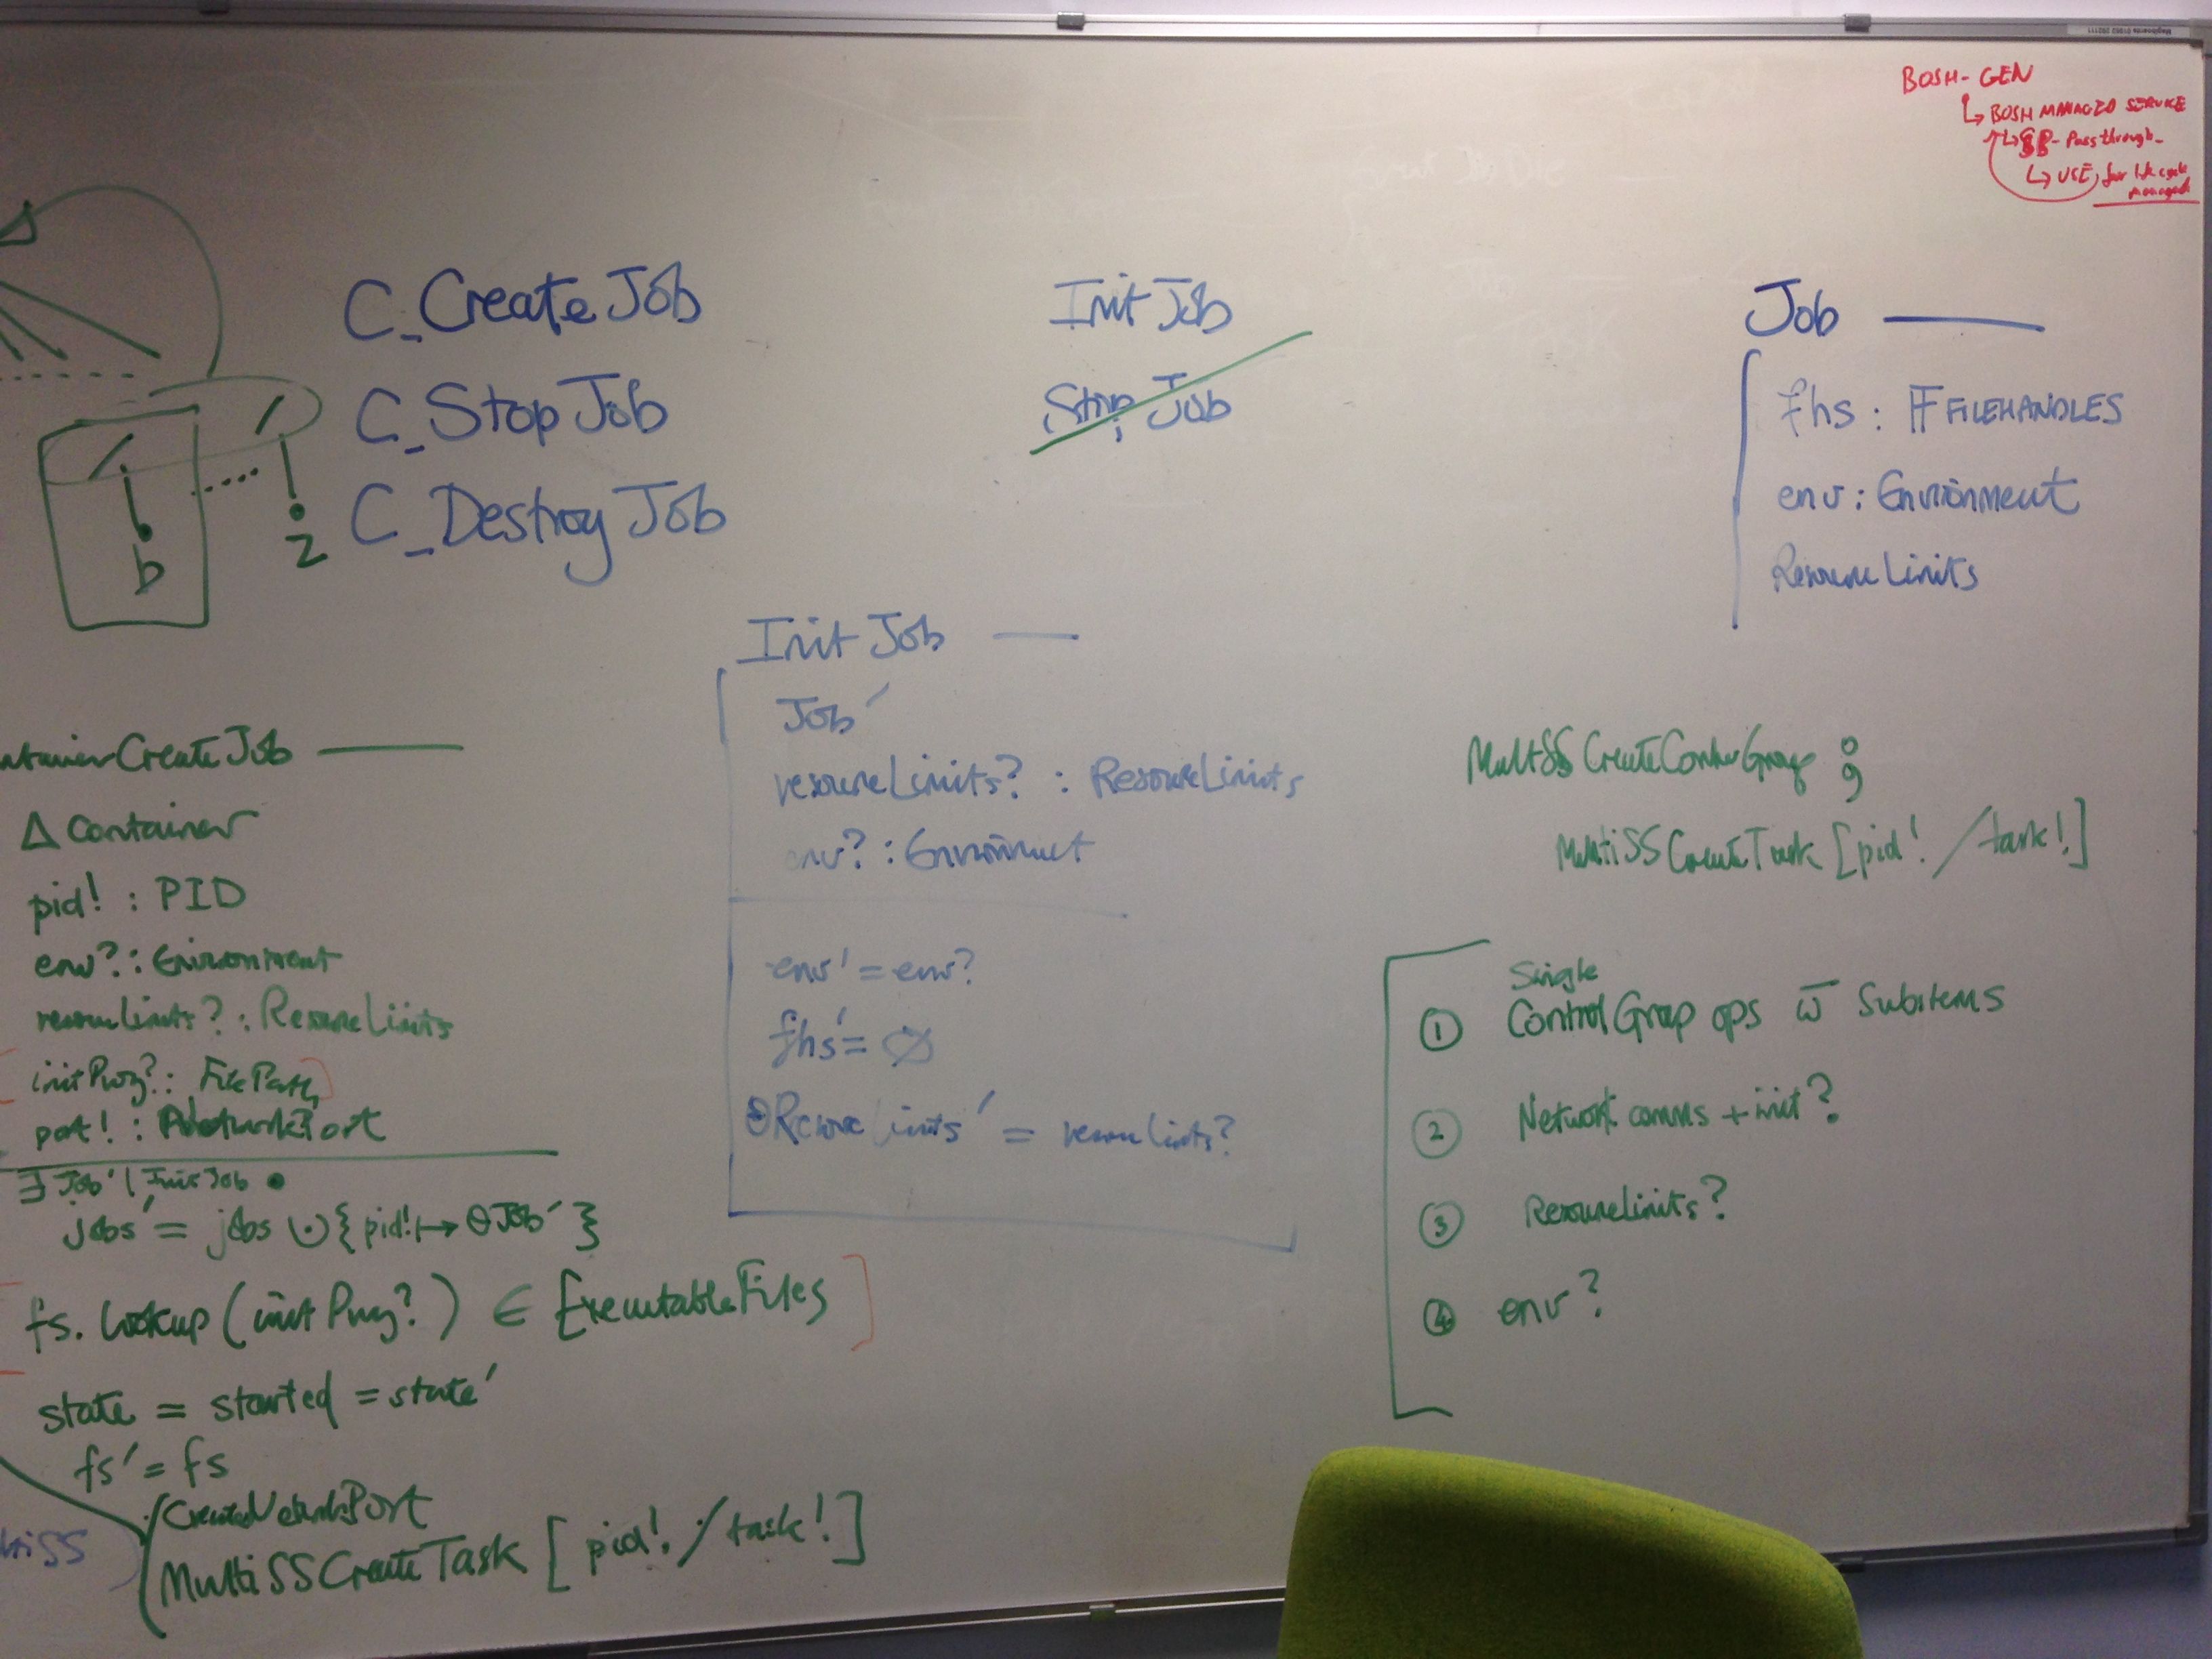 BOSH-GEN
↳ BOSH MANAGED SERVICE
↳ - Passthrough
↳ USE, for life cycle
managed
C_CreateJob
C_StopJob
C_DestroyJob
b
2
InitJob
Stop Job
Job
fhs : 𝔽 FILEHANDLES
env : Environment
ResourceLimits
InitJob
Job′
resourceLimits? : ResourceLimits
env? : Environment
env′ = env?
fhs′ = ∅
θResourceLimits′ = resourceLimits?
ntainerCreateJob
Δ Container
pid! : PID
env? : Environment
resourceLimits? : ResourceLimits
initProg? : FilePath
port! : NetworkPort
∃ Job′ | InitJob •
jobs′ = jobs ∪ { pid! ↦ θJob′ }
fs. lookup (initProg?) ∈ ExecutableFiles
state = started = state′
fs′ = fs
CreateNetworkPort
MultiSSCreateTask [ pid! / task! ]
tiSS
MultiSSCreateControlGroup ;
MultiSSCreateTask [pid! / task!]
① Single
ControlGroup ops w̄ Subsystems
② Network comms + init?
③ ResourceLimits?
④ env?